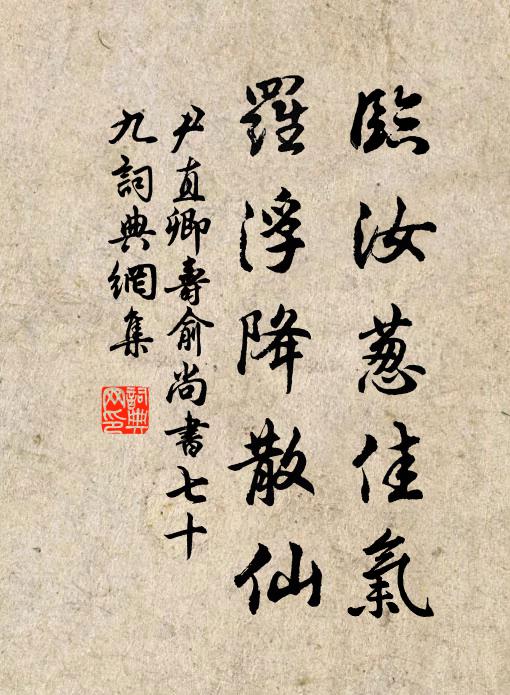 臨汝葱佳氣
羅浮降散仙
尹直卿壽俞尚書七十
九詞典網集
詞典網印